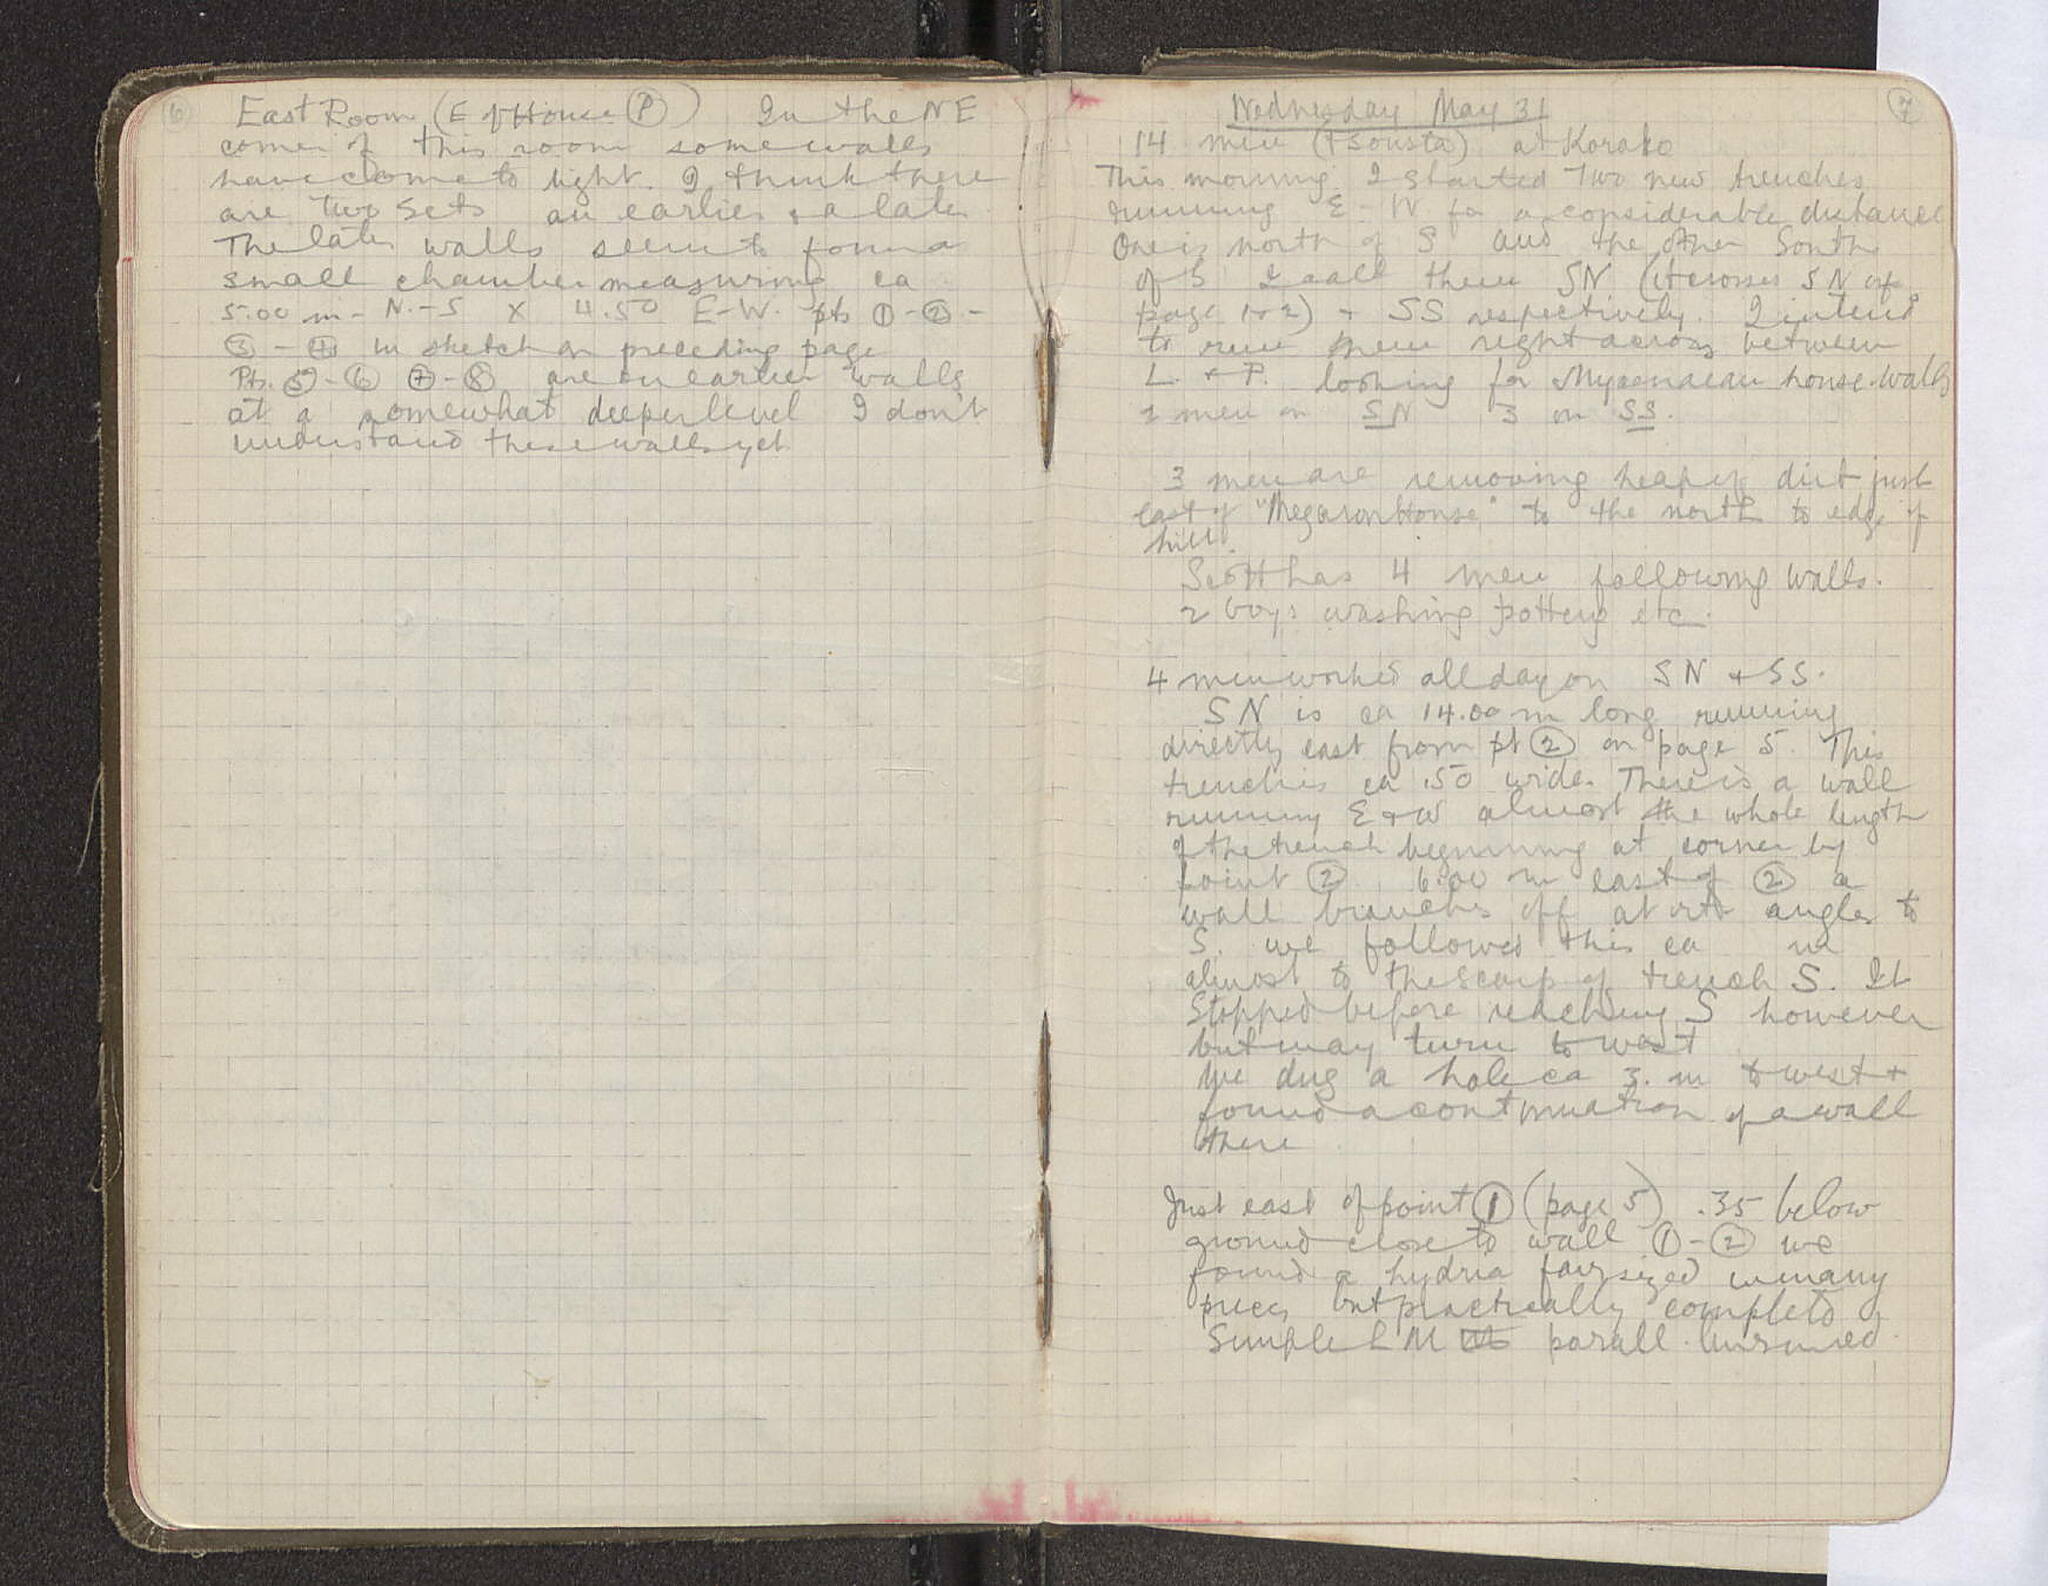 6
East Room (E of House P) In the NE
corner of this room some walls
have come to light. I think there
are two sets an earlier + a later
The later walls seem to form a
small chamber measuring ca
5.00 m - N.-S x 4.50 E-W. pts ①-②-
③-④ in sketch on preceding page
Pts. ⑤-⑥ ⑦-⑧ are on earlier walls
at a somewhat deeper level I don't
understand these walls yet
7
Wednesday May 31
14 men (+ Sousta) at Korako
This morning I started two new trenches
running E-W for a considerable distance
One is north of S and the other South
of S I call them SN (it crosses SN of
page 1+2) + SS respectively. I intend
to run them right across between
L. + P. looking for Mycenaean house walls
2 men on SN 3 on SS.
3 men are removing heap of dirt just
east of "Megaron House" to the north to edge of
hill.
Scott has 4 men following walls.
2 boys washing pottery etc.
4 men worked all day on SN + SS.
SN is ca 14.00 m long running
directly east from pt ② on page 5. This
trench is ca .50 wide. There is a wall
running E + W almost the whole length
of the trench beginning at corner by
point ② 6.00 m east of ② a
wall branches off at rt angles to
S. we followed this ca m
almost to the scarp of trench S. It
stopped before reaching S however
but may turn to west
We dug a hole ca 3. m to west +
found a continuation of a wall
there
Just east of point ① (page 5) .35 below
ground close to wall ①-② we
found a hydria fair sized in many
pieces but practically complete of
Simple L M parall.